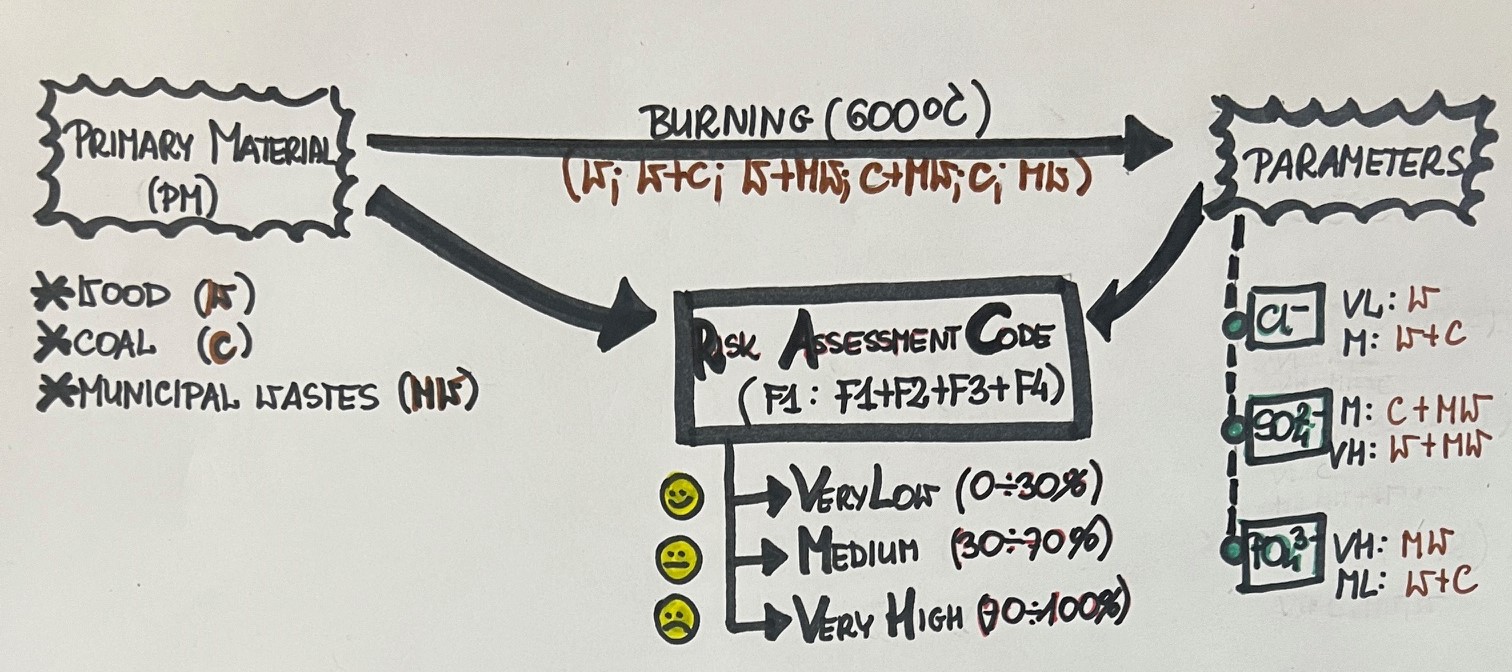 PRIMARY MATERIAL
(PM)
* WOOD (W)
* COAL (C)
* MUNICIPAL WASTES (MW)
BURNING (600°C)
(W; W+C; W+MW; C+MW; C; MW)
RISK ASSESSMENT CODE
(F1: F1+F2+F3+F4)
VERY LOW (0÷30%)
MEDIUM (30÷70%)
VERY HIGH (70÷100%)
PARAMETERS
Cl⁻
VL: W
M: W+C
SO₄²⁻
M: C+MW
VH: W+MW
PO₄³⁻
VH: MW
ML: W+C